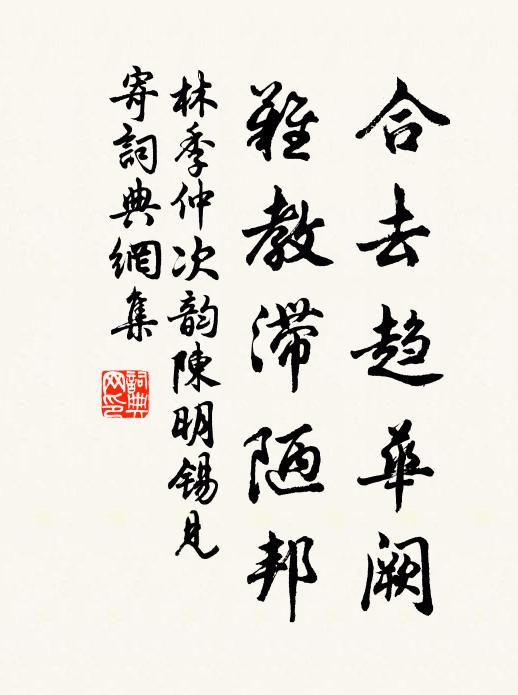 合去趋華阙
難教滯陋邦
林季仲次韵陳明锡見
寄詞典網集
詞典
网印